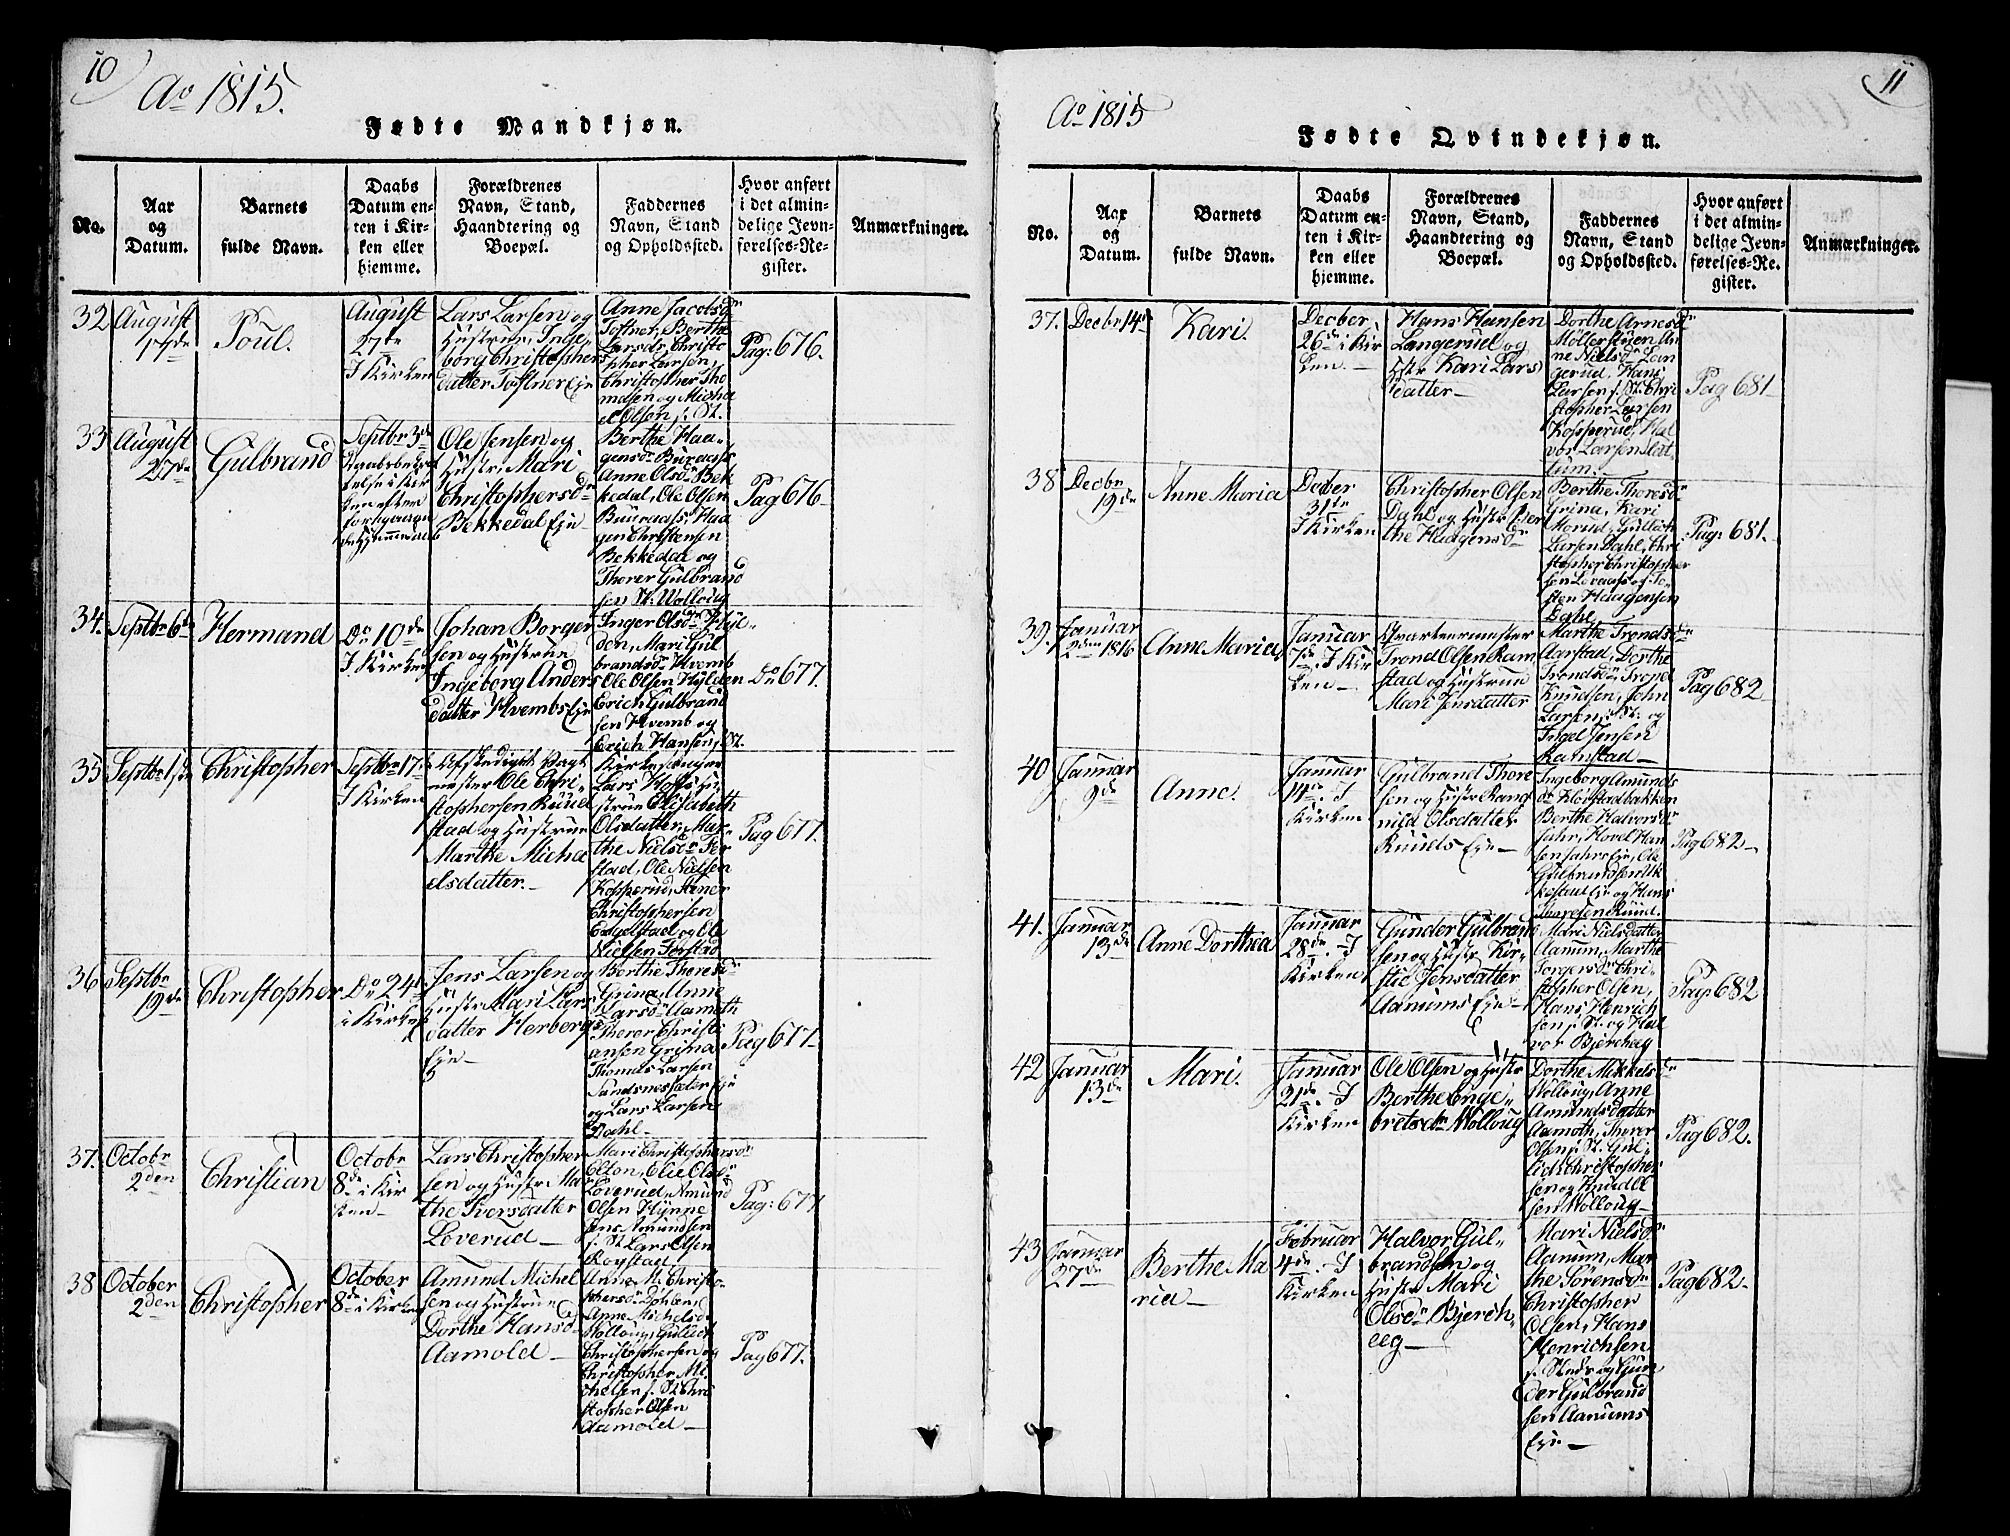 10
Ao 1815.
Fødte Mandkjøn.
No.
Aar
og
Datum.
Barnets
fulde Navn.
Daabs
Datum en-
ten i Kir-
ken eller
hjemme.
Forældrenes
Navn, Stand,
Haandtering og
Boepæl.
Faddernes
Navn, Stand
og Opholdssted.
Hvor anført
i det almin-
delige Jevn-
førelses-Re-
gister.
Anmærkninger.
32
August
17de
Poul.
August
27de
I Kirken
Lars Larsen og
Hustrue, Inge-
borg Christophers
datter Tostner Eje
Anne Jacobsdr
Tostner, Berthe
Larsdr, Christo
pher Larsen,
Christopher Tho
masen og Micha
el Olsen, s. St.
Pag: 676.
33
August
27de
Gulbrand
Septbr 3de
Ole Jensen og
Hustr. Mari
Christophersdr
Bekkedal Eje
Berthe Haa
gensdr Buraas
Anne Olsdr Bek
kedal, Ole Olsen
Buraas, Haa
gen Christensen
Bekkedal og
Thorer Gulbrand
sen St. Wolloug
Pag 676
34.
Septbr 6de
Hermand
Do 10de
I Kirken
Johan Borger
sen og Hustrue
Ingeborg Anders
datter Hvembs Eje
Inger Olsdr Hyl-
den, Mari Gul
brandsdr Hvemb
Ole Olsen Hylden
Erich Gulbrand
sen Hvemb og
Erich Hansen, St.
Do 677.
35
Septbr 1ste
Christopher
Septbr 17de
I Kirken
Afskediget Vagt
mester Ole Chri-
stophersen Ruud
stad og Hustrue
Marthe Micha
elsdatter.
Kirkesanger
Lars Hoff, Hu
strue Elisabeth
Olsdatter, Mar-
the Nielsdr Fer
stad, Ole Nielsen
Kopperud, Stener
Christophersen
Engelstad og Ole
Nielsen Forstad
Pag 677.
36
Septbr
19de
Christopher
Do 24de
i Kirken
Jens Larsen og
Hustr. Mari Lars
datter Herbergs
Eje
Berthe Thoresdr
Grina, Anne
Larsdr Aamoth
Thorer Christi
ansen Grina
Thomas Larsen
Sandsnesseter Eje
og Lars Larsen
Dahl
Pag 677
37.
Octobr
2den
Christian
Octobr
8de i Kir
ken
Lars Christopher
sen og Hustr. Mar
the Iversdatter
Loverud
Mari Christophersdr
Elton, Elie Olsdr
Loverud, Amund
Olsen Hynne
Jens Amundsen
s. St. Lars Olsen
Roystad
Pag: 677
38
October
2den
Christopher
October
8de i Kirken
Amund Michel
sen og Hustrue
Dorthe Hansdr
Aamold
Anne M. Christo-
phersdr Dahlen
Anne Michelsdr
Wolloug, Gulich
Christophersen og
Christopher Mi
chelsen s. St. Chri
stopher Olsen
Aamold
Pag 677.
11
Ao 1815
Fødte Qvindekjøn.
No.
Aar
og
Datum.
Barnets
fulde Navn.
Daabs
Datum en-
ten i Kir-
ken eller
hjemme.
Forældrenes
Navn, Stand,
Haandtering og
Boepæl.
Faddernes
Navn, Stand
og Opholdssted.
Hvor anført
i det almin-
delige Jevn-
førelses-Re-
gister.
Anmærkninger.
37.
Decbr 14de
Kari
Decber
26de i Kir
ken.
Hans Hansen
Langerud og
Hstr Kari Lars
datter
Dorthe Arnesdr
Møllerstuen An
ne Nielsdr Lan
gerud, Hans
Larsen s. St. Chri
stopher Larsen
Kopperud, Hal
vor Larsen Slat
tum.
Pag 681
38
Decbr
19de
Anne Maria
Decber
31te
I Kirken
Christopher Olsen
Dahl og Hustr Ber
the Haagensdr
Berthe Thoresdr
Grina, Kari
Morud, Gulich
Larsen Dahl, Chri
stopher Christopher
sen Lovaas og To
sten Haagensen
Dahl
Pag: 681.
39.
Januar
2den 1816
Anne Maria
Januar
7de. I Kir
ken
Qvarteermester
Trond Olsen Ram
stad og Hustrue
Mari Jensdatter
Marthe Trondsdr
Aarstad, Dorthe
Trondsdr, Trond
Knudsen, John
Larsen, s. St. og
Ingel Jensen
Ramstad
Pag 682
40
Januar
9de
Anne.
Januar
14de. I
Kirken
Gulbrand Thore
sen og Hustr Rang
nild Olsdatter
Ruuds Eje
Ingeborg Amunds
dr Klovstadbakken
Berthe Halvorsdr
Jahr, Hovel Han
sen Jahrs Eje, Ole
Gulbrandsen Uk
kestad Eje og Hans
Thoresen Ruud.
Pag 682
41.
Januar
13de
Anne Dorthea
Januar
28de. I
Kirken
Gunder Gulbrand
sen og Hustr Kir-
stie Jensdatter
Aanums Eje
Mari Nielsdatter
Aanum, Marthe
Torgersdr Chri-
stopher Olsen,
Hans Henrich
sen s. St. og Hal
vor Bjercheeg
Pag: 682
42
Januar
13de
Mari.
Januar
21de. I
Kirken
Ole Olsen og Hustr
Berthe Enge-
bretsdr Wolloug
Dorthe Mikkelsdr
Wolloug, Anne
Amundsdatter
Aamoth, Thorer
Olsen s. St. Gul-
lich Christopher
sen og Knud Ol
sen Wolloug
Pag 682.
43
Januar
27de
Berthe Ma
ria
Februar
4de. I
Kirken
Halvor Gul-
brandsen og
Hustr Mari
Olsdr Bjerch-
eeg
Mari Nielsdr
Aanum, Mar
the Sørensdr
Christopher
Olsen, Hans
Henrichsen
s. Steds og Gun
der Gulbrand
sen Aanums
Eje
Pag 682